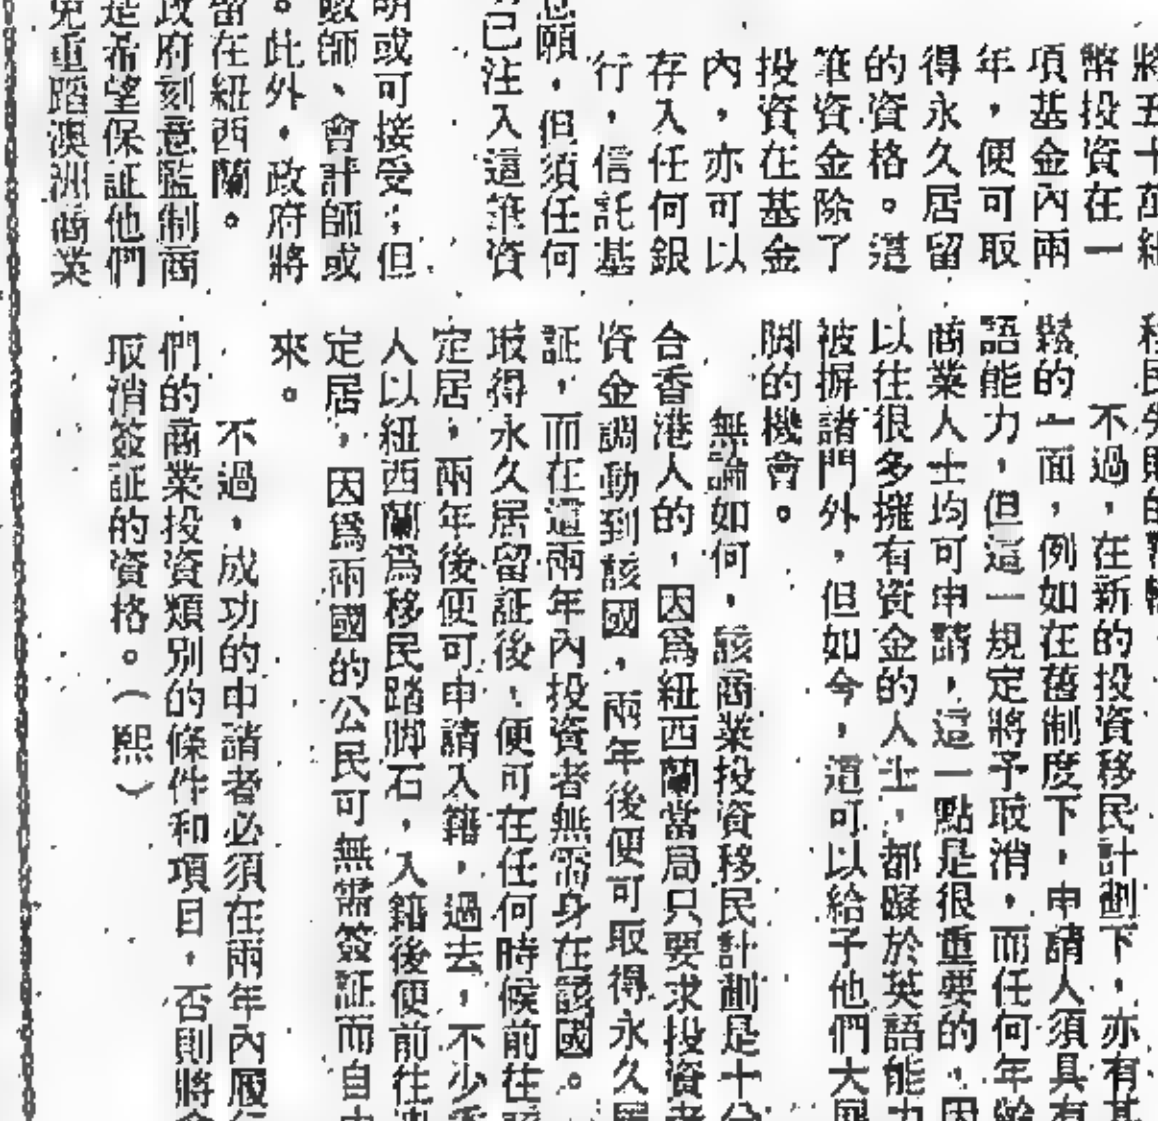 幣投資在一
項基金內兩
年，便可取
得永久居留
的資格。這
筆資金除了
投資在基金
內，亦可以
存入任何銀
行，信託基
願，但須任何
已注入這筆資
或可接受；但
師、會計師或
。此外，政府將
留在紐西蘭。
政府刻意監制商
是希望保証他們
免重蹈澳洲商業
不過，在新的投資移民計劃下，亦有
鬆的一面，例如在舊制度下，申請人須具有
語能力，但這一規定將予取消，而任何年齡
商業人士均可申請，這一點是很重要的，因
以往很多擁有資金的人士，都礙於英語能力
被摒諸門外，但如今，這可以給予他們大展
脚的機會。
無論如何，該商業投資移民計劃是十分
合香港人的，因為紐西蘭當局只要求投資者
資金調動到該國，兩年後便可取得永久居
証，而在這兩年內投資者無需身在該國。
得永久居留証後，便可在任何時候前往
定居，兩年後便可申請入籍，過去，不少
人以紐西蘭為移民踏脚石，入籍後便前往
定居，因為兩國的公民可無需簽証而自
來。
不過，成功的申請者必須在兩年內履行
們的商業投資類別的條件和項目，否則將會
取消簽証的資格。（熙）